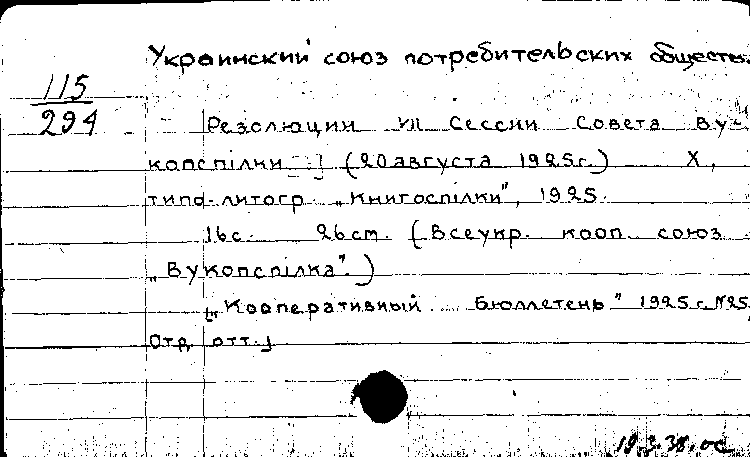 Украинский союз потребительских обществ.
115
294
Резолюции VII Сессии Совета Ву-
копспілки [...] (20 августа 1925г.) Х,
типо-литогр. „Книгоспілки", 1925.
16с. 26см. (Всеукр. кооп. союз
„Вукопспілка".)
[„Кооперативный Бюллетень" 1925г. №25,
Отд. отт.]